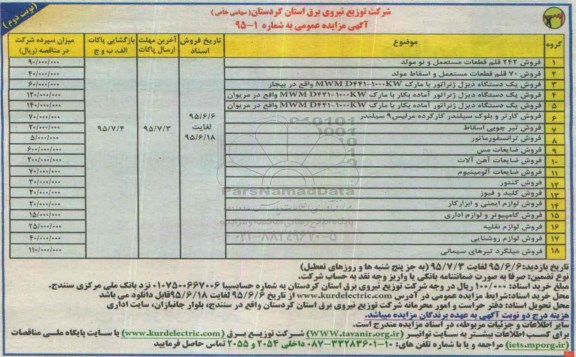 (نوبت دوم)
شرکت توزیع نیروی برق استان کردستان (سهامی خاص)
آگهی مزایده عمومی به شماره ۱-۹۵
گروه
موضوع
تاریخ فروش اسناد
آخرین مهلت ارسال پاکات
بازگشایی پاکات الف، ب و ج
میزان سپرده شرکت در مناقصه (ریال)
۹۵/۶/۶ لغایت ۹۵/۶/۱۸
۹۵/۷/۳
۹۵/۷/۴
۱ فروش ۲۴۲ قلم قطعات مستعمل و نو مولد
۲ فروش ۷۰ قلم قطعات مستعمل و اسقاط مولد
۳ فروش یک دستگاه دیزل ژنراتور با مارک MWM D441-1000KW واقع در بیجار
۴ فروش یک دستگاه دیزل ژنراتور آماده بکار با مارک MWM D441-1000KW واقع در مریوان
۵ فروش یک دستگاه دیزل ژنراتور آماده بکار با مارک MWM D441-1000KW واقع در مریوان
۶ فروش کارتر و بلوک سیلندر کارکرده مرلیس ۹ سیلندر
۷ فروش تیر چوبی اسقاط
۸ فروش ترانسفورماتور
۹ فروش ضایعات مس
۱۰ فروش ضایعات آهن آلات
۱۱ فروش ضایعات آلومینیوم
۱۲ فروش کنتور
۱۳ فروش کلید و فیوز
۱۴ فروش لوازم ایمنی و ابزارکار
۱۵ فروش کامپیوتر و لوازم اداری
۱۶ فروش لوازم نقلیه
۱۷ فروش لوازم روشنایی
۱۸ فروش میلگرد تیرهای سیمانی
ParsNamadData
۰۲۱-۸۸۳۴۹۶۷۰-۵
تاریخ بازدید: ۹۵/۶/۶ لغایت ۹۵/۷/۳ (به جز پنج شنبه ها و روزهای تعطیل)
نوع تضمین: صرفا به صورت ضمانتنامه بانکی یا واریز وجه نقد به حساب شرکت.
مبلغ خرید اسناد: ۱۰۰/۰۰۰ ریال در وجه شرکت توزیع نیروی برق استان کردستان به شماره حسابسیبا ۰۱۰۷۵۰۰۶۶۷۰۰۶ نزد بانک ملی مرکزی سنندج.
محل خرید اسناد: شرایط مزایده عمومی در آدرس www.kurdelectric.com از تاریخ ۹۵/۶/۶ لغایت ۹۵/۶/۱۸ قابل دانلود می باشد
محل تحویل اسناد: دفتر حراست و امور محرمانه شرکت توزیع نیروی برق استان کردستان واقع در سنندج، بلوار جانبازان، سایت اداری
هزینه درج دو نوبت آگهی به عهده برندگان مزایده میباشد.
سایر اطلاعات و جزئیات مربوطه، در اسناد مزایده مندرج است.
برای کسب اطلاعات بیشتر به سایت توانیر (WWW.tavanir.org.ir) شرکت توزیع برق (www.kurdelectric.com) یا سایت پایگاه ملی مناقصات
(iets.mporg.ir) مراجعه و یا با شماره تلفن های: ۱۰-۳۳۲۸۳۶۰۱-۰۸۷ داخلی ۲۰۵۴ و ۲۰۵۵ تماس حاصل فرمایید